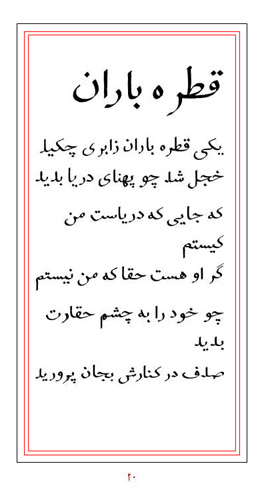 قطره باران
یکی قطره باران زابری چکید
خجل شد چو پهنای دریا بدید
که جایی که دریاست من
کیستم
گر او هست حقا که من نیستم
چو خود را به چشم حقارت
بدید
صدف در کنارش بجان پرورید
۲۰